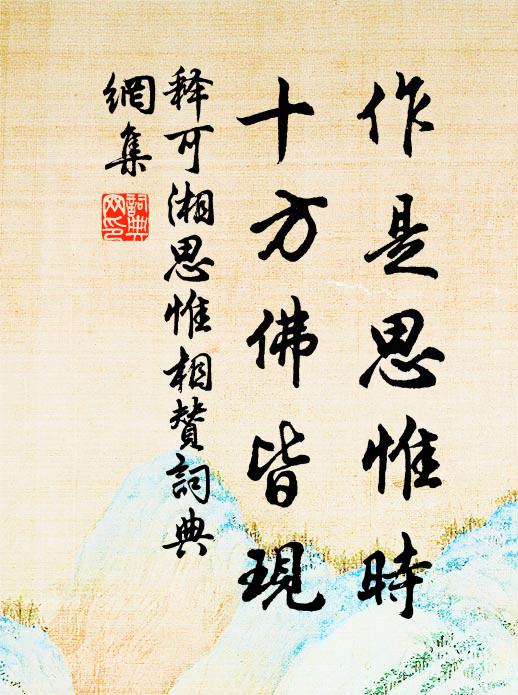 作是思惟時
十方佛皆現
释可湘思惟相赞詞典
網集
詞典
网印